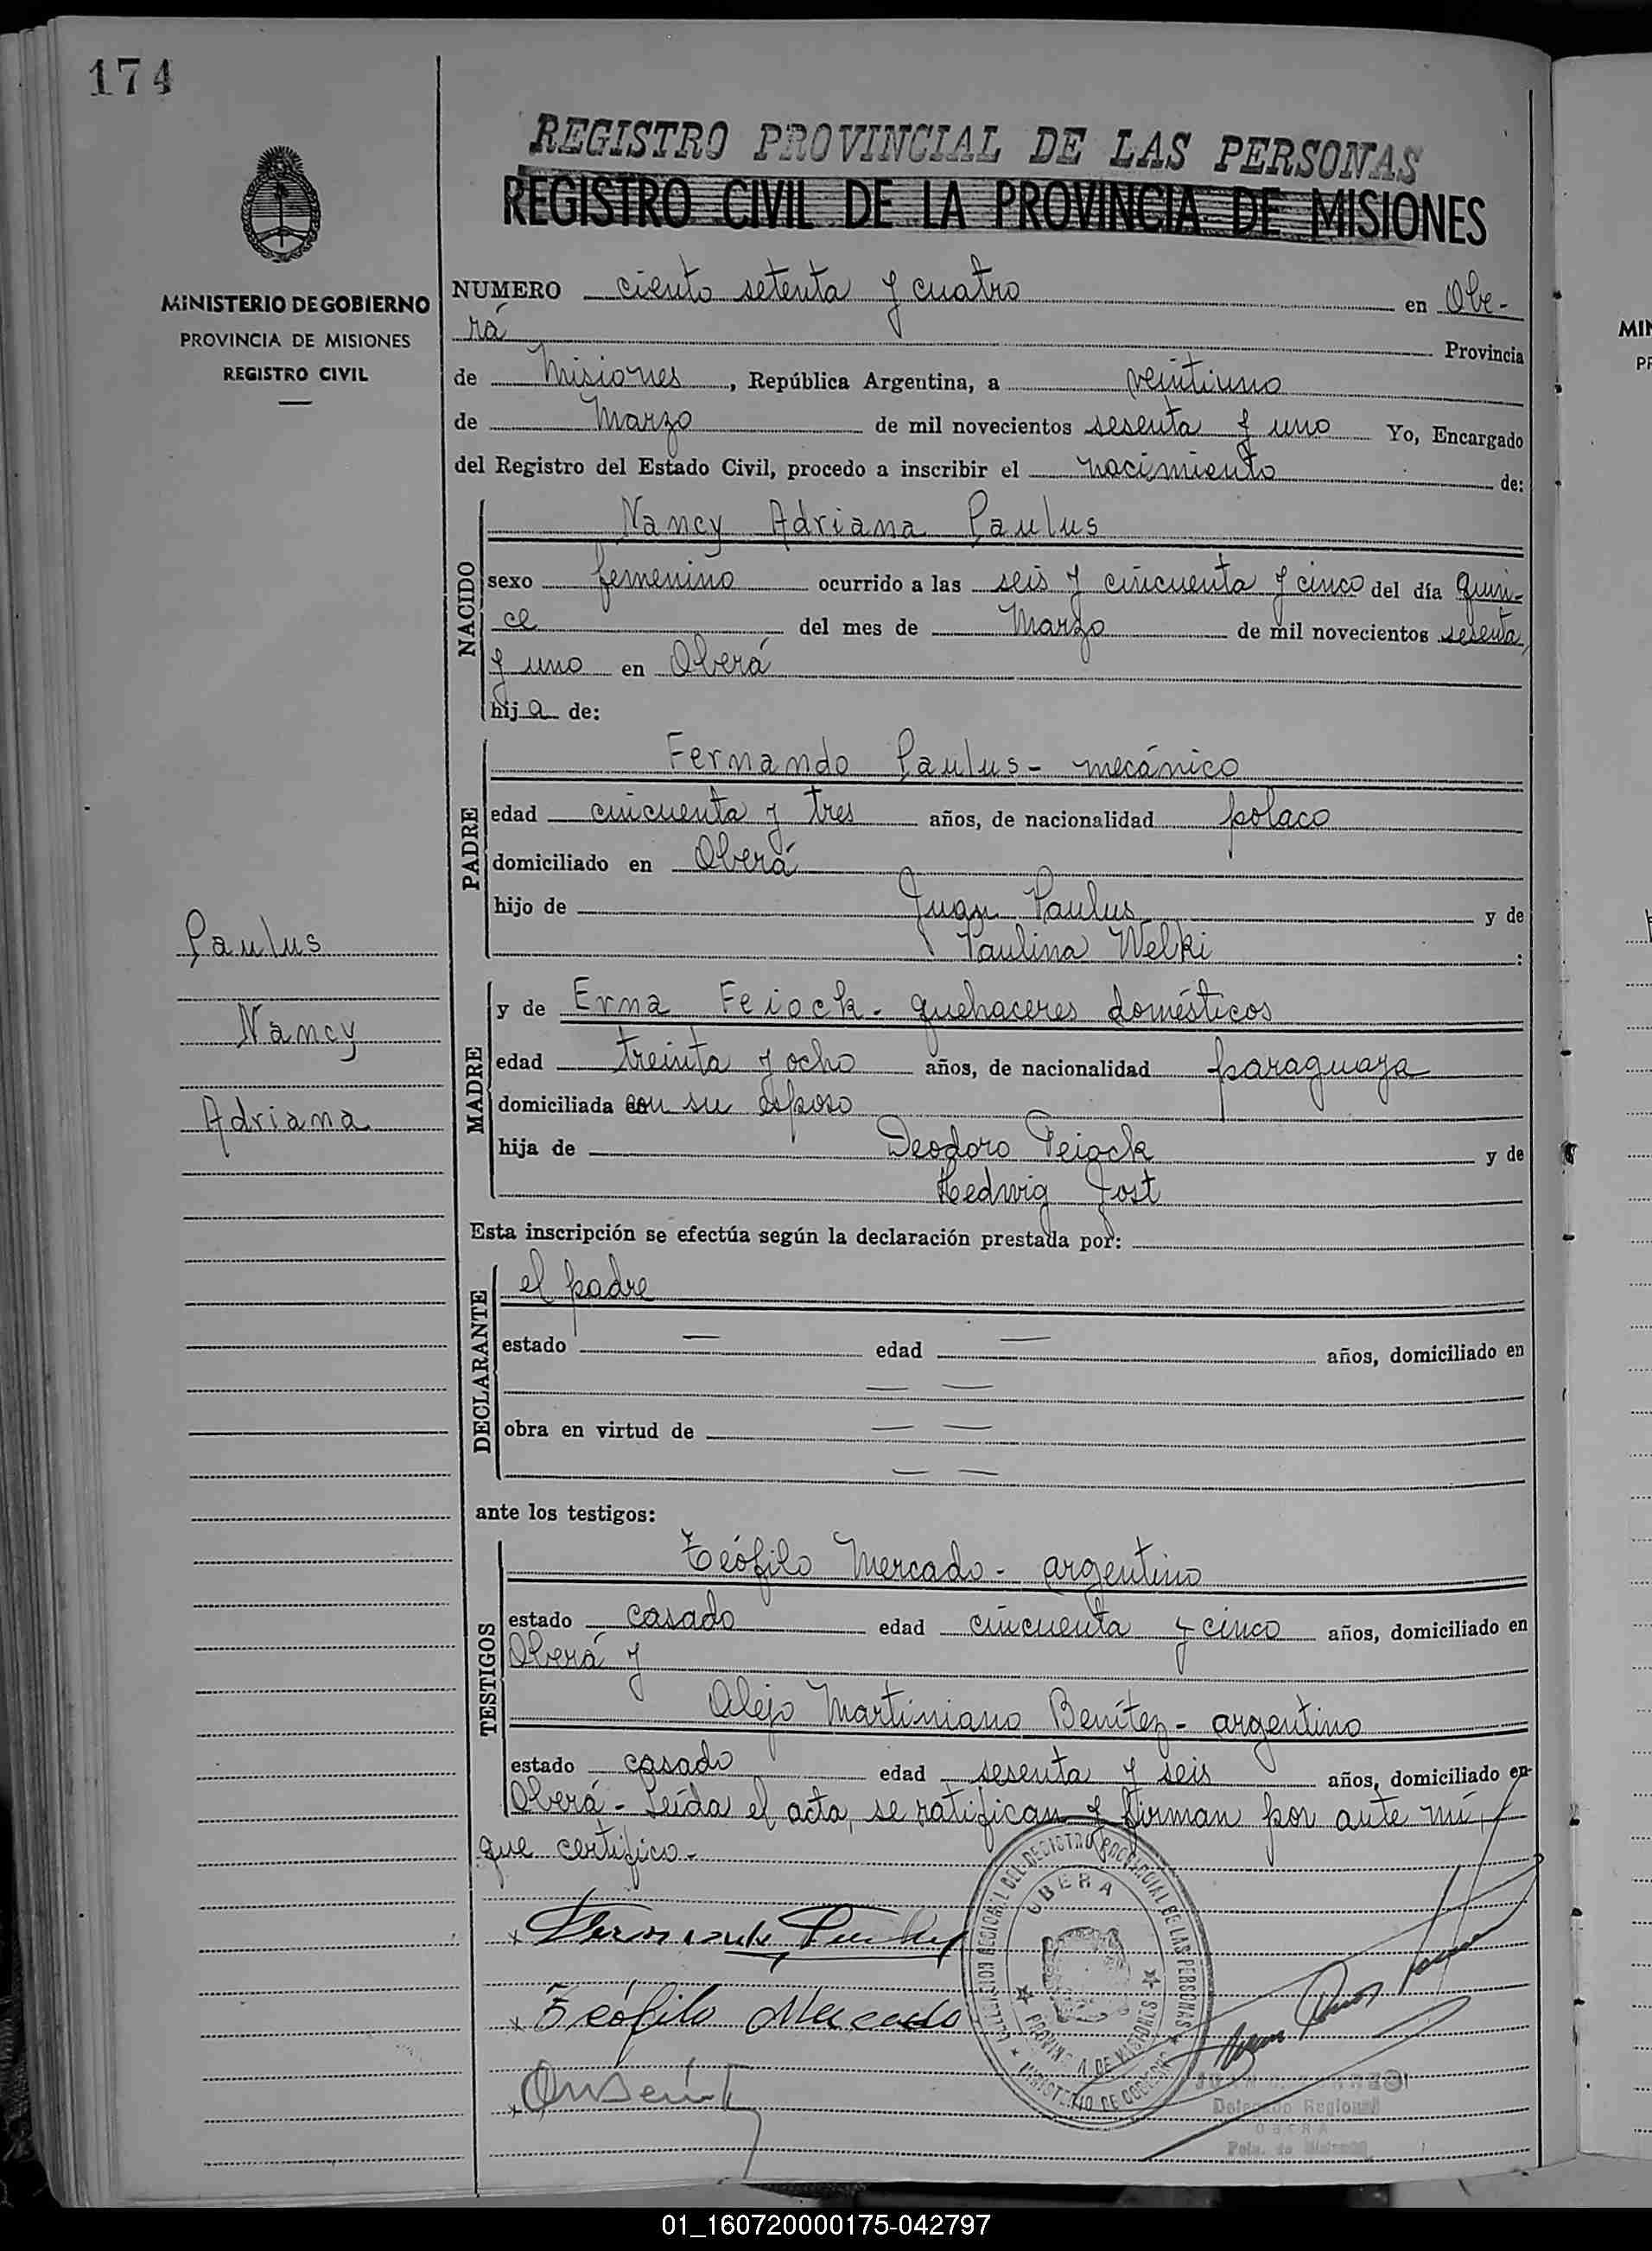 174
REGISTRO PROVINCIAL DE LAS PERSONAS
REGISTRO CIVIL DE LA PROVINCIA DE MISIONES
MINISTERIO DE GOBIERNO
PROVINCIA DE MISIONES
REGISTRO CIVIL
NUMERO ciento setenta y cuatro en Obe-
rá Provincia
de Misiones, República Argentina, a veintiuno
de Marzo de mil novecientos sesenta y uno Yo, Encargado
del Registro del Estado Civil, procedo a inscribir el nacimiento de:
NACIDO
Nancy Adriana Paulus
sexo femenino ocurrido a las seis y cincuenta y cinco del día quin-
ce del mes de Marzo de mil novecientos sesenta
y uno en Oberá
hija de:
PADRE
Fernando Paulus - mecánico
edad cincuenta y tres años, de nacionalidad polaco
domiciliado en Oberá
hijo de Juan Paulus y de
Paulina Welki :
Paulus
Nancy
Adriana
MADRE
y de Erna Feiock - quehaceres domésticos
edad treinta y ocho años, de nacionalidad paraguaya
domiciliada con su esposo
hija de Deodoro Feiock y de
Hedwig Jost
Esta inscripción se efectúa según la declaración prestada por:
DECLARANTE
el padre
estado — edad — años, domiciliado en
— —
obra en virtud de — —
— —
ante los testigos:
TESTIGOS
Teófilo Mercado - argentino
estado casado edad cincuenta y cinco años, domiciliado en
Oberá y
Alejo Martiniano Benítez - argentino
estado casado edad sesenta y seis años, domiciliado en
Oberá - Leída el acta, se ratifican y firman por ante mí,
que certifico.-
DELEGACION REGIONAL DEL REGISTRO PROVINCIAL DE LAS PERSONAS
OBERA
PROVINCIA DE MISIONES
MINISTERIO DE GOBIERNO
x Teófilo Mercado
Delegado Regional
OBERA
Pcia. de Misiones
01_160720000175-042797